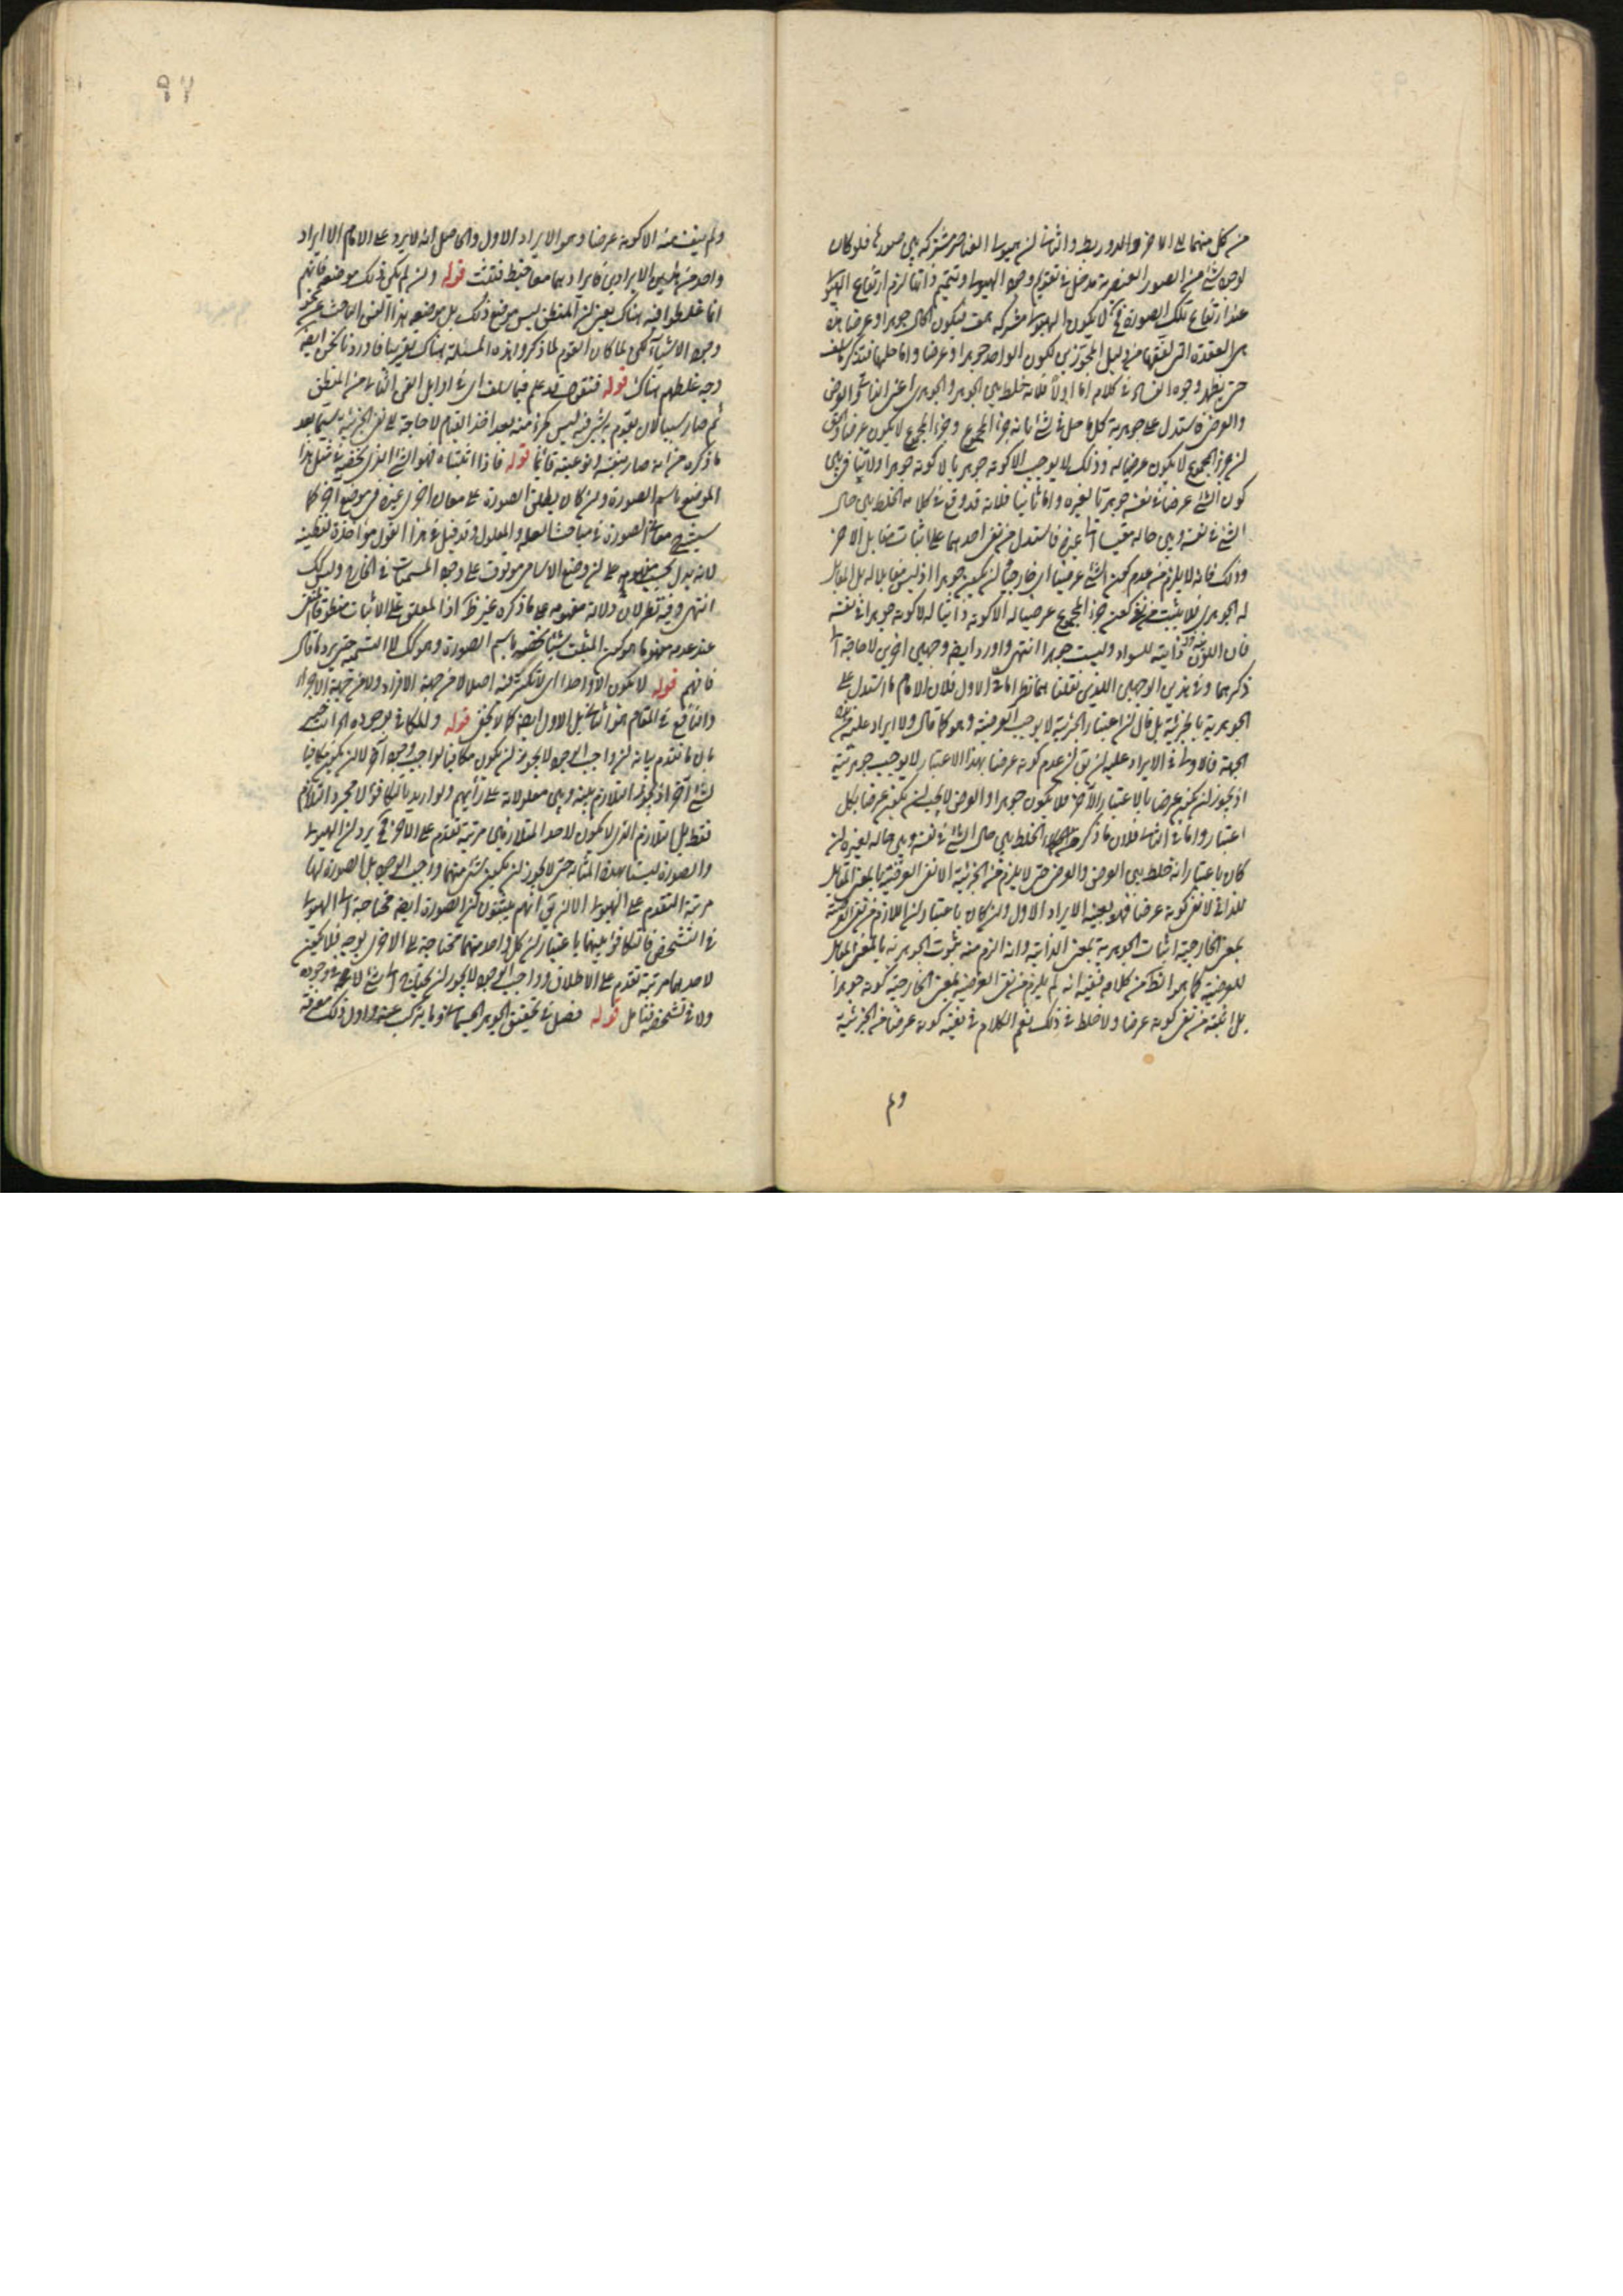 من كل منهما على الآخر والدور يطر والثانى ان هيولى العناصر مشتركة بين صورها فلو كان
لوجود شئ من الصور العنصرية مدخل فى تقويم وجود الهيولى وتتميم ذاتها لزم ارتفاع الهيولى
عند ارتفاع تلك الصورة فح لا يكون الهيولى مشتركة
هى العقدة التى دليل المجوزين لكون الواحد جوهرا وعرضا واما حلها فتذكر ما سلف
حتى يظهر وجوه الفساد فى كلامه اما اولا فلانه خلط بين الجوهر والجوهرى اعنى الذاتى والعرض
والعرضى فاستدل على جوهرية كل ما حل فى شئ بانه جزء المجموع وجزء المجموع لا يكون عرضا والحق
ان جزء المجموع لا يكون عرضيا له وذلك لا يوجب الا كونه جوهريا لا كونه جوهرا ولا تنافى بين
كون الشئ عرضا فى نفسه جوهريا لغيره واما ثانيا فلانه قد وقع فى كلامه الخلط بين حال
الشئ فى نفسه وبين حاله مقيسا الى غيره فاستدل من نفى احدهما على اثبات مقابل الآخر
وذلك فانه لا يلزم من عدم كون الشئ عرضيا اى خارجيا ان يكون جوهرا اذ ليس مقابلا له بل المقابل
له الجوهرى فلا يثبت من نفى كون جزء المجموع عرضيا له الا كونه ذاتيا له لا كونه جوهرا فى نفسه
فان اللون ذاتية للسواد وليست جوهرا انتهى واورد ايضه وجهين اخرين لا حاجة الى
ذكرهما وفى هذين الوجهين اللذين نقلنا هما نظر اما فى الاول فلان الامام ما استدل على
الجوهرية بالجزئية بل قال ان اعتبار الجزئية لا يوجب العرضية وهو كما قال ولا ايراد عليه من هذه
الجهة فالاولى فى الايراد عليه ان يق ان عدم كونه عرضا بهذا الاعتبار لا يوجب جوهريته
اذ يجوز ان يكون عرضا بالاعتبار الآخر فلا يكون جوهرا والعرض لا يجب ان يكون عرضا بكل
اعتبار واما فى الثانى فلان ما ذكره من الخلط بين حال الشئ فى نفسه وبين حاله لغيره ان
كان باعتبار انه خلط بين العرض والعرضى حتى لا يلزم من الجزئية الا نفى العرضية بالمعنى المقابل
للذاتى لا نفى كونه عرضا فهو بعينه الايراد الاول وان كان باعتبار ان اللازم من نفى العرضية
بمعنى الخارجية اثبات الجوهرية بمعنى الذاتية وانه الزم منه ثبوت الجوهرية بالمعنى المقابل
للعرضية كما هو الظ من كلامه ففيه انه لم يلزم من نفى العرضية بمعنى الخارجية كونه جوهرا
بل اثبته من نفى كونه عرضا ولا خلط فى ذلك نعم الكلام فى نفيه كونه عرضا من الجزئية
ولم
٩٧
ولم يثبت منه الا كونه عرضا وهو الايراد الاول والحاصل انه لا يرد على الامام الا ايراد
واحد من هذين الايرادين فايرادهما معا فتثبت قوله وان لم يكن ذلك موضعه فانهم
انما غلطوا فيه هناك يعنى ان المنطق ليس موضع ذلك بل موضعه هذا الفن الباحث عن نحو
وجود الاشياء لكن لما كان القوم لما ذكروا هذه المسئلة هناك فاوردنا نحن ايضه
وجه غلطهم هناك قوله فنقول قد علم فيما سلف اى فى اوايل الفن الثانى من المنطق
ثم صار سببا لان يقوم به شئ فيه ليس كجزء منه بعد اخذ القيام لا حاجة الى نفى الجزئية سيما بعد
ما ذكره من انه صار بنفسه ونوعيته قائما قوله فاذا اثبتناه فهو الشئ الذى يخصه فى مثل هذا
الموضع باسم الصورة وان كان يطلق الصورة على معان اخرى غيره فى موضع آخر كما
سيشرح معانى الصورة فى مباحث العلة والمعلول وقد قيل فى هذا القول مؤاخذة لفظية
لانه يدل بحسب مفهومه على ان وضع الاسامى موقوف على وجود المسميات فى الخارج وليس كك
انتهى وفيه نظر لان دلالة مفهومه على ما ذكره غير ظ اذ المعلق على الاثبات منطوقا
عند عدمه مفهوما هو كون المثبت شيئا نخصه باسم الصورة وهو كك لا التسمية حتى يرد ما قال
فافهم قوله لا يكون الا واحدا اى لا تكثر فيه اصلا لا من جهة الافراد ولا من جهة الاجزاء
والنافع فى المقام هو الثانى بل الاول ايضه كما لا يخفى قوله والمكافى لوجوده
بان ما تقدم بيانه ان واجب الوجود لا يجوز ان يكون مكافيا لواجب وجود آخر لا ان يكون مكافيا
لشئ آخر اذ يجوز التلازم بينه وبين معلولاته على رأيهم ولو اريد بالتكافؤ لا مجرد التلازم
فقط بل التلازم الذى لا يكون لاحد المتلازمين مرتبة تقدم على الآخر فح يرد ان الهيولى
والصورة ليستا بهذه المثابة حتى لا يجوز ان يكون شئ منهما واجب الوجود بل الصورة لها
مرتبة التقدم على الهيولى الا ان يق انهم يثبتون ان الصورة ايضه محتاجة الى الهيولى
فى التشخص فالتكافؤ بينهما باعتبار ان كل واحد منهما محتاجة الى الاخرى بوجه فلا يكون
لاحدهما مرتبة تقدم على الاطلاق وواجب الوجود لا يجوز ان يحتاج الى شئ لا فى وجوده
ولا فى تشخصه فتامل قوله فصل فى تحقيق الجوهر الجسمانى وما يتركب عنه واول ذلك معرفة